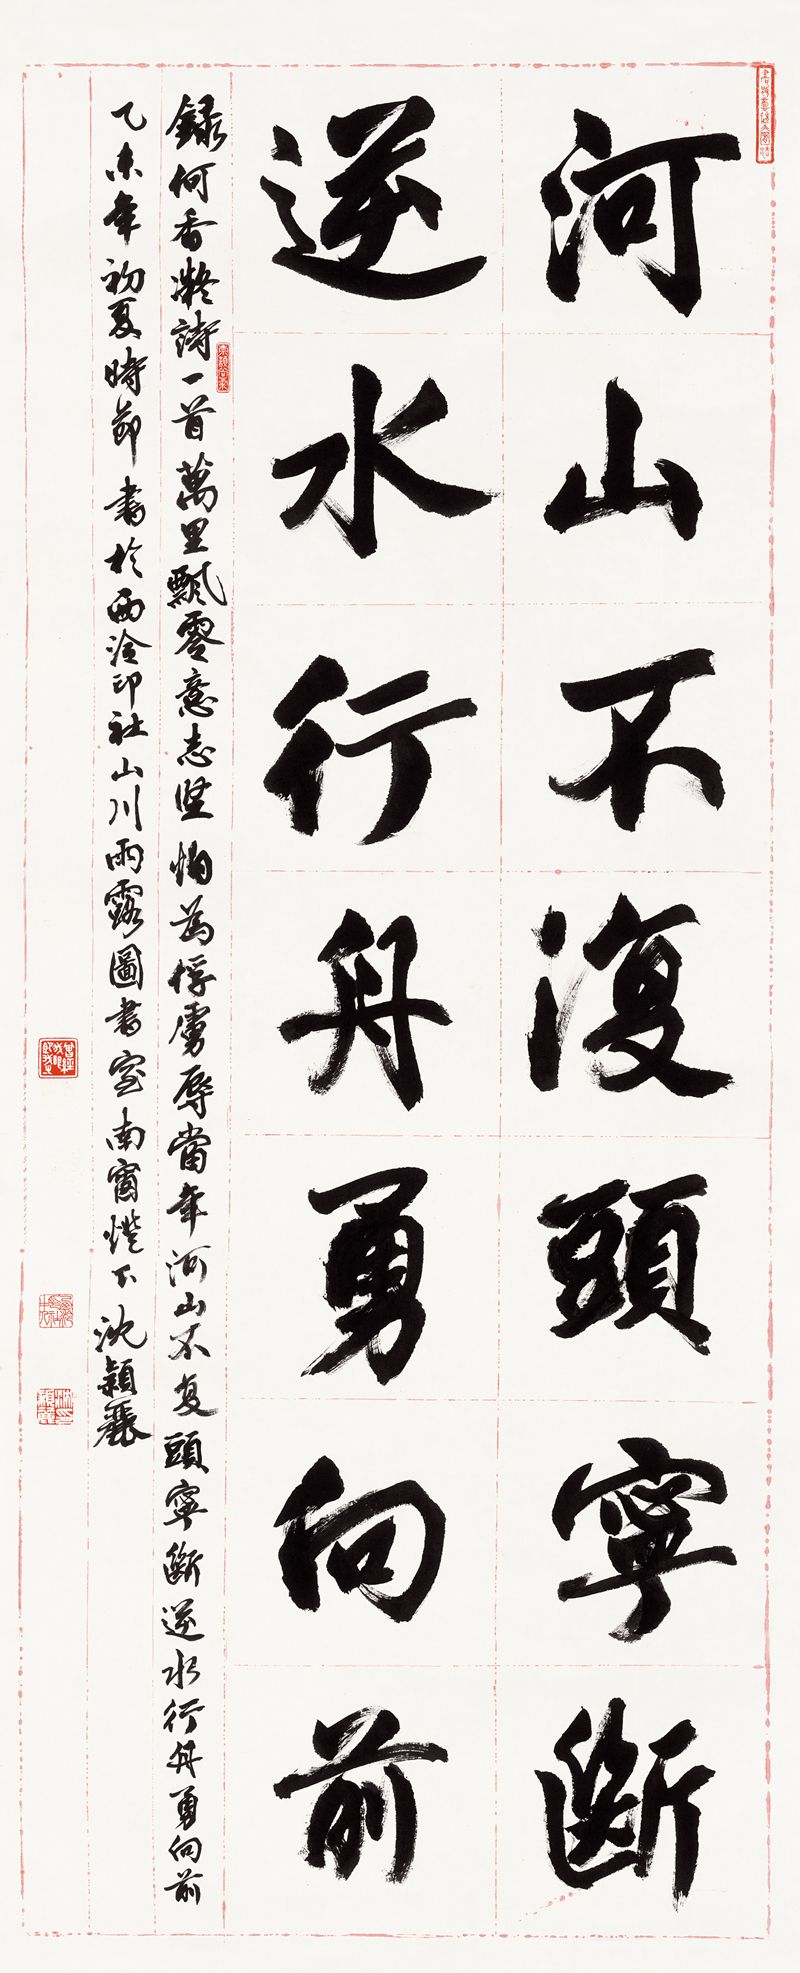 河山不復頭寧斷
逆水行舟勇向前
録何香凝詩一首萬里飄零意志堅怕為俘虜辱當年河山不复頭寧斷逆水行舟勇向前
乙未年初夏時節書於西泠印社山川雨露圖書室南窗燈下沈穎麗